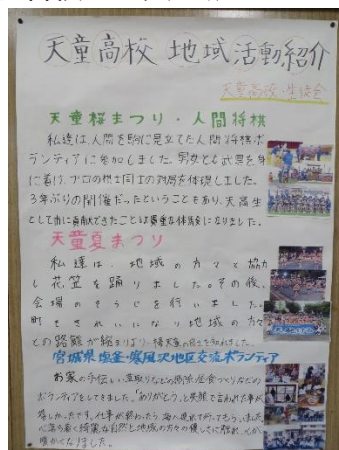 天童高校 地域活動紹介
天童高校・生徒会
天童桜まつり・人間将棋
私達は、人間を駒に見立てた人間将棋ボ
ランティアに参加しました。男女とも武具を身
に着け、プロの棋士同士の対局を体現しました。
3年ぶりの開催だったということもあり、天高生
として市に貢献できたことは貴重な体験になりました。
天童夏まつり
私達は、地域の方々と協力
し花笠を踊りました。その後、
会場のそうじを行いました。
町をきれいになり地域の方々
との距離が縮まり
宮城県塩釜・寒風沢地区交流ボランティア
お家の手伝い、草取りなどの
ボランティアをしてきました。「ありがとう」と笑顔で言われた事が
嬉しかったです。仕事が終わったら海へ連れて行ってもらいました。
心落ち着く綺麗な自然と地域の方々の優しさに触れ、心が
暖かくなりました。